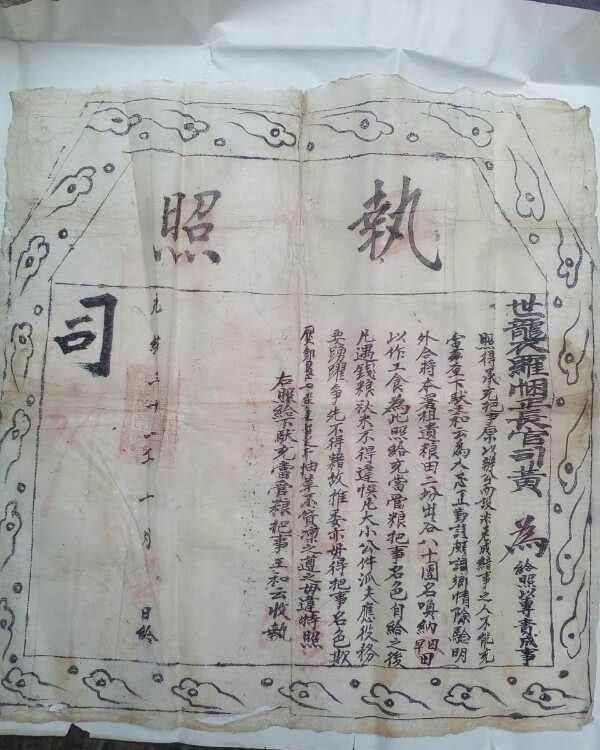 執照
世襲羅悃正長官司黃 為
給照以專責成事
照得承充把事原以辦公而設非老成結事之人不能充
當 下馱王和云為人忠正 鄉情除驗明
外合將本署祖遺粮田二坋出谷八十圓名喚納 田
以作工食為此照給充當管粮把事名色自給之後
凡遇錢粮 不得違悞凡大小公件派夫應役務
要踴躍爭先不得藉故推委亦毋得把事名色欺
抽筭不貸凜之遵之毋違特照
右照給下馱充當管粮把事王和云收執
光緒三十一年十一月 日給
司